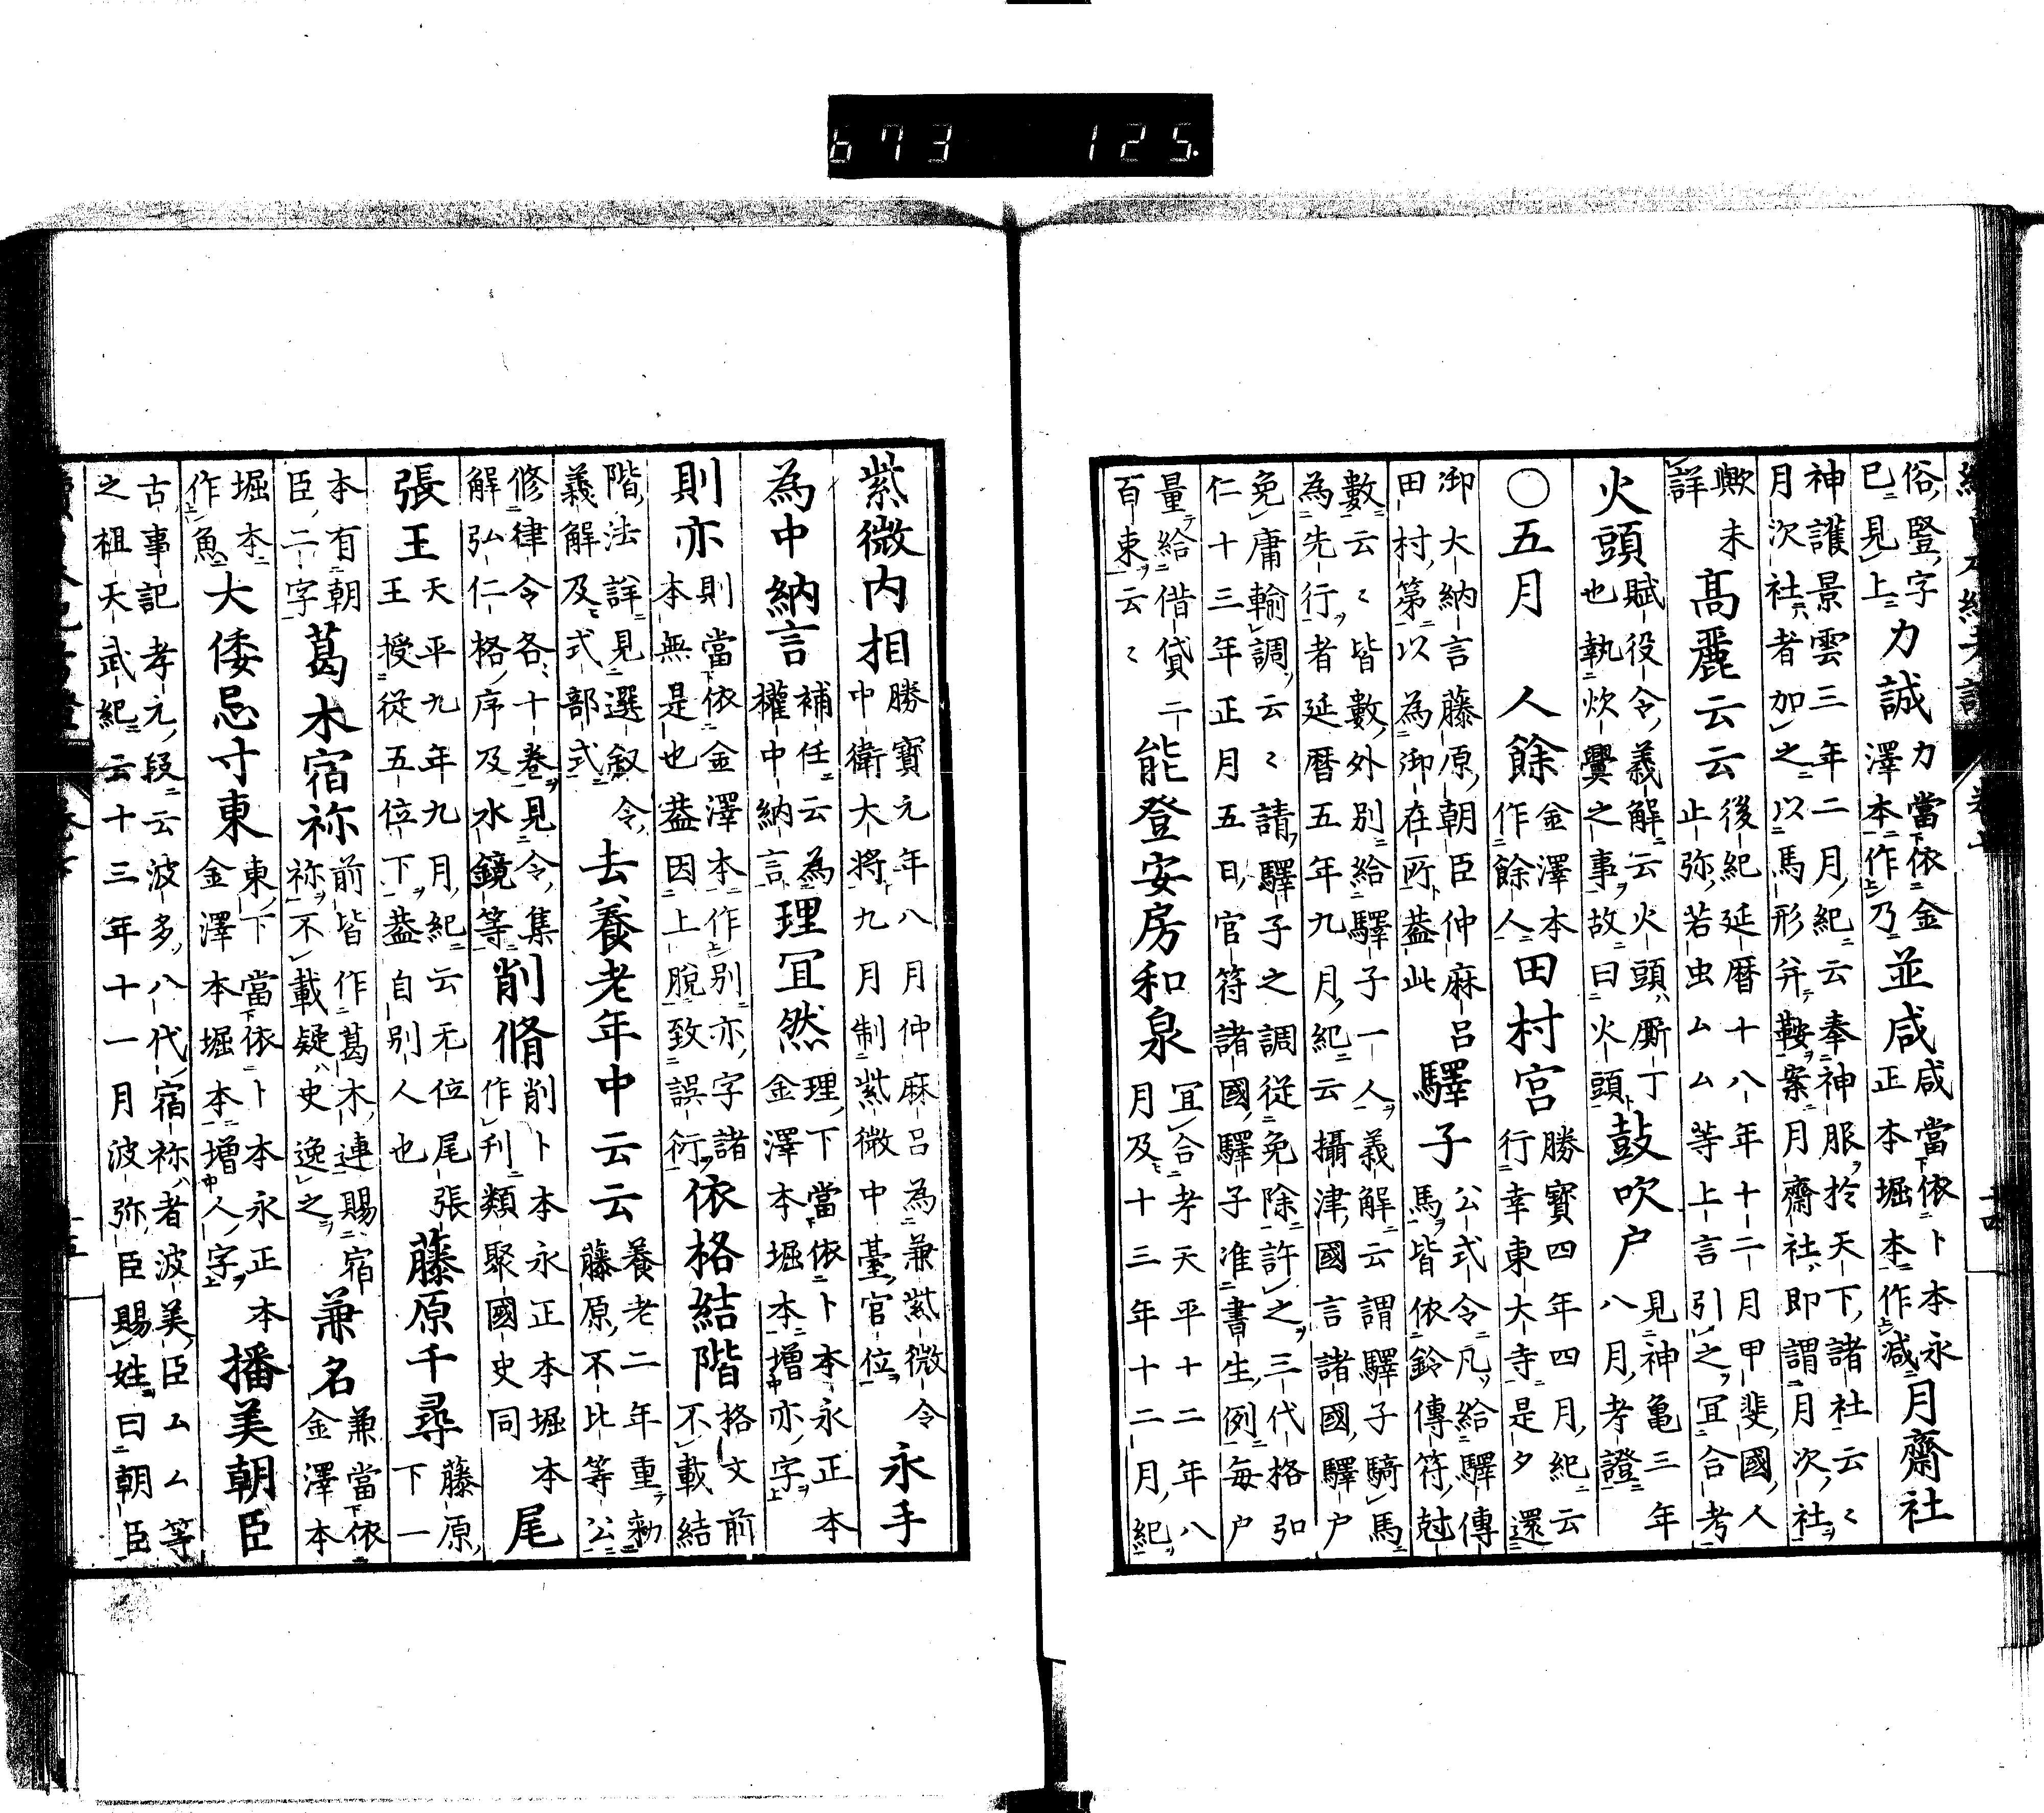 673 125.
俗竪字巳見上力誠力當依金澤本作乃並咸咸當依卜本永正本堀本作減月齋社
神護景雲三年二月紀云奉神服於天下諸社云〻月次社者加之以馬形并鞍案月齋社即謂月次社
歟未詳高麗云云後紀延暦十八年十二月甲斐國人止弥若虫ムム等上言引之宜合考
火頭賦役令義解云火頭厮丁也執炊爨之事故曰火頭鼓吹户見神亀三年八月考證
○五月 人餘金澤本作餘人田村宮勝寶四年四月紀云行幸東大寺是夕還
御大納言藤原朝臣仲麻呂田村第以為御在所盖此驛子公式令凡給驛傳馬皆依鈴傳符尅
數云〻皆數外別給驛子一人義解云謂驛子騎馬為先行者延暦五年九月紀云攝津國言諸國驛户
免庸輸調云〻請驛子之調從免除許之三代格弘仁十三年正月五日官符諸國驛子准書生例毎户
量給借貸二百束云〻能登安房和泉宜合考天平十二年八月及十三年十二月紀
紫微内相勝寶元年八月仲麻呂為兼紫微令中衛大將九月制紫微中臺官位永手
為中納言補任云為權中納言理冝然理下當依卜本永正本金澤本堀本増亦字
則亦則當依金澤本作別亦字諸本無是也盖因上脱致誤衍依格結階格文前不載結
階法詳見選叙令義解及式部式去養老年中云云養老二年重勑藤原不比等公
修律令各十卷見令集解弘仁格序及水鏡等削脩削卜本永正本堀本作刋類聚國史同尾
張王天平九年九月紀云无位尾張王授從五位下盖自別人也藤原千尋藤原下一
本有朝臣二字葛木宿祢前皆作葛木連賜宿祢不載疑史逸之兼名兼當依金澤本
堀本作魚大倭忌寸東東下當依卜本永正本金澤本堀本増人字播美朝臣
古事記孝元段云波多八代宿祢者波美臣ムム等之祖天武紀云十三年十一月波弥臣賜姓曰朝臣